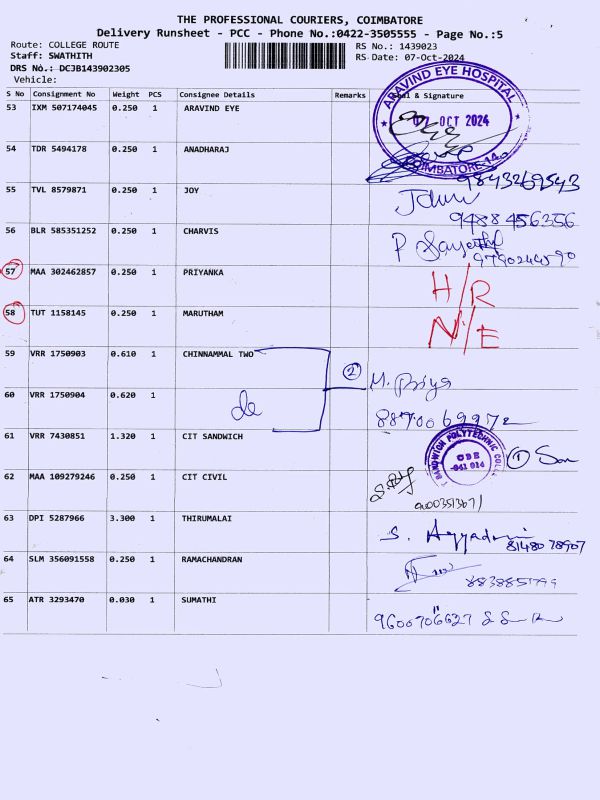 THE PROFESSIONAL COURIERS, COIMBATORE
Delivery Runsheet - PCC - Phone No.:0422-3505555 - Page No.:5
Route: COLLEGE ROUTE RS No.: 1439023
Staff: SWATHITH RS Date: 07-Oct-2024
DRS No.: DCJB143902305
Vehicle:
S No Consignment No Weight PCS Consignee Details Remarks Seal & Signature
53 IXM 507174045 0.250 1 ARAVIND EYE
ARAVIND EYE HOSPITAL
OCT 2024
COIMBATORE-14
54 TDR 5494178 0.250 1 ANADHARAJ
9843269543
55 TVL 8579871 0.250 1 JOY
9488456356
56 BLR 585351252 0.250 1 CHARVIS
P
57 MAA 302462857 0.250 1 PRIYANKA H/R
58 TUT 1158145 0.250 1 MARUTHAM N/E
59 VRR 1750903 0.610 1 CHINNAMMAL TWO
2 M. Priya
60 VRR 1750904 0.620 1 de
61 VRR 7430851 1.320 1 CIT SANDWICH
POLYTECHNIC
1
62 MAA 109279246 0.250 1 CIT CIVIL
63 DPI 5287966 3.300 1 THIRUMALAI
S.
8148078907
64 SLM 356091558 0.250 1 RAMACHANDRAN
65 ATR 3293470 0.030 1 SUMATHI
9600706627